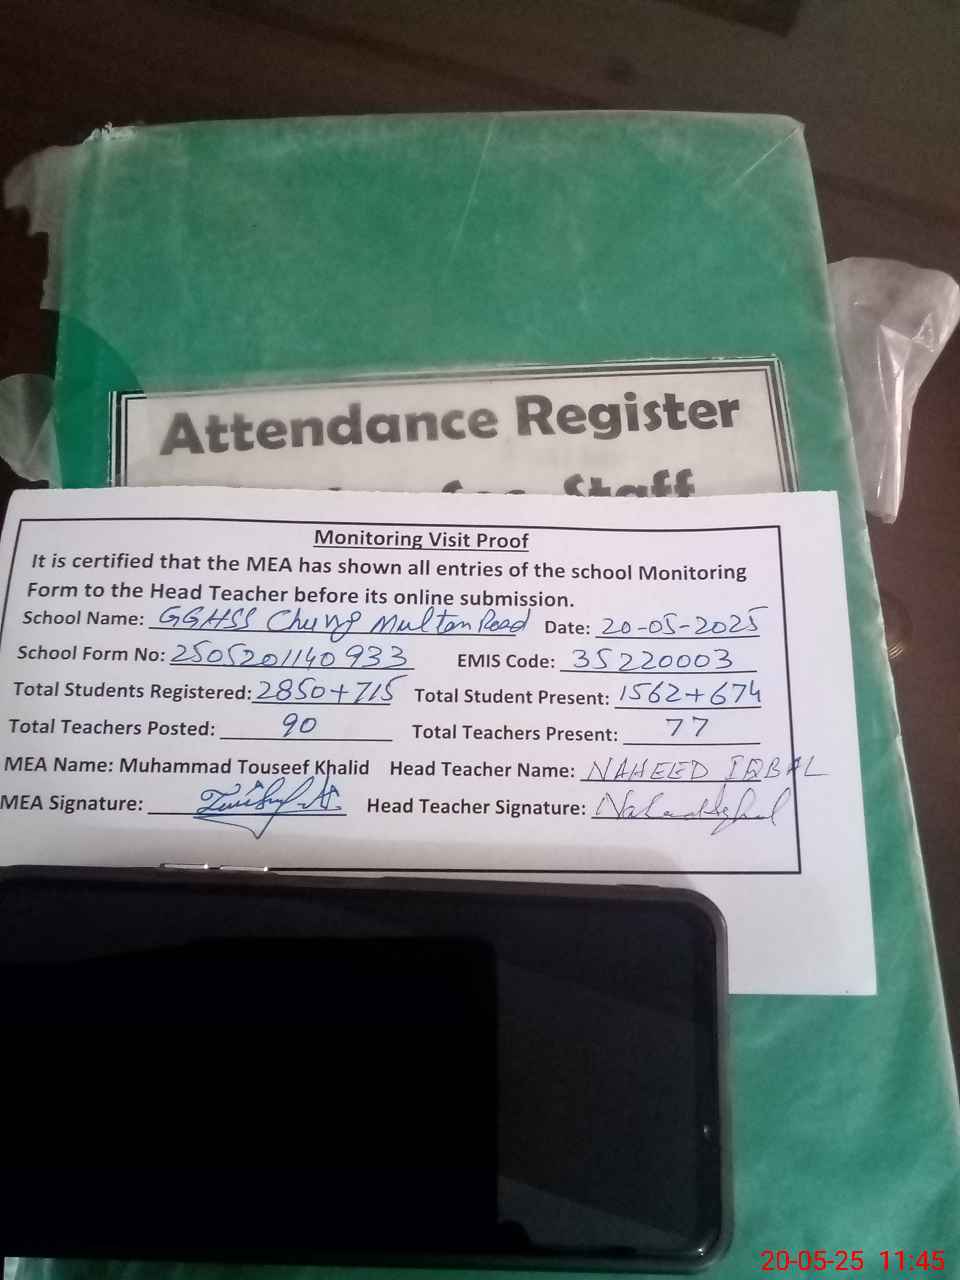 Attendance Register
for Staff
Monitoring Visit Proof
It is certified that the MEA has shown all entries of the school Monitoring
Form to the Head Teacher before its online submission.
School Name: GGHSS Chung Multan Road Date: 20-05-2025
School Form No: 2505201140933 EMIS Code: 35220003
Total Students Registered: 2850+715 Total Student Present: 1562+674
Total Teachers Posted: 90 Total Teachers Present: 77
MEA Name: Muhammad Touseef Khalid Head Teacher Name: NAHEED IQBAL
MEA Signature: Head Teacher Signature:
20-05-25 11:45